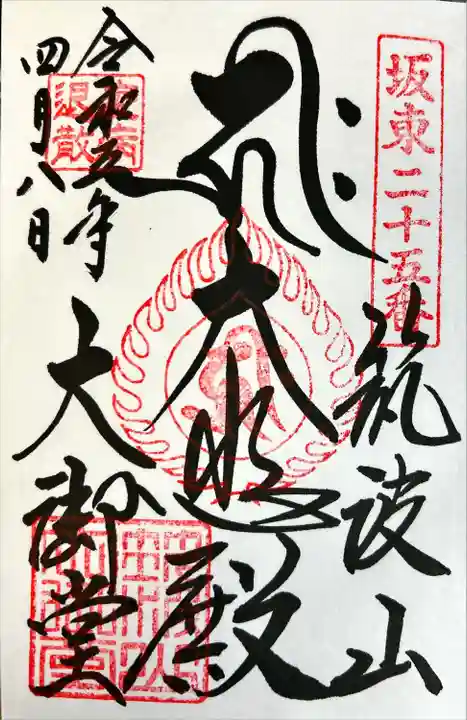 坂東二十五番
筑波山
大悲殿
大御堂
令和五年
四月八日
疫病退散